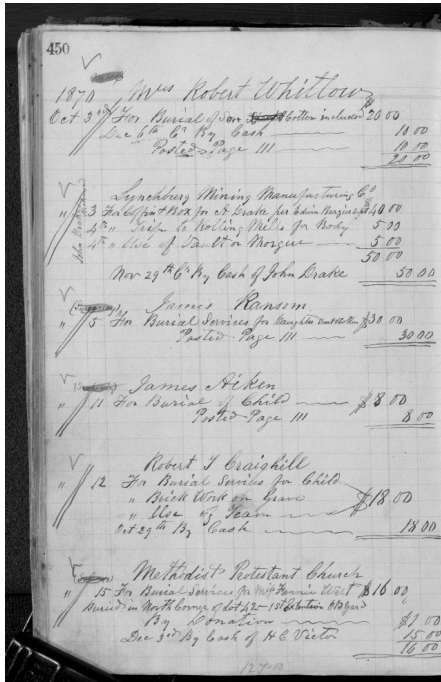 450
Mrs Robert Whitlow
1870
Oct 3rd For Burial of Son Cotton included $20 00
Dec 6th Cr By Cash 10 00
Posted Page 111 10 00
20 00
Lynchburg Mining Manufacturing Co
" 3 For Coffin & Box for A Drake per Edwin $40 00
4th " Trip to Rolling Mills for Body 5 00
4th " Use of Vault or Morgue 5 00
50 00
Nov 29th Cr By Cash of John Drake 50 00
James Ransom
" 5 For Burial Services for Daughter $30 00
Posted Page 111 30 00
James Aiken
" 11 For Burial of Child $8 00
Posted Page 111 8 00
Robert T Craighill
" 12 For Burial Services for Child
" Brick Work on Grave $18 00
" Use of Team
Oct 29th By Cash 18 00
Methodist Protestant Church
" 15 For Burial Services for Mrs Fannie West $16 00
Buried in North Corner of Lot 42 - 1st
By Donation $1 00
Dec 3rd By Cash of H C Victor 15 00
16 00
127 00